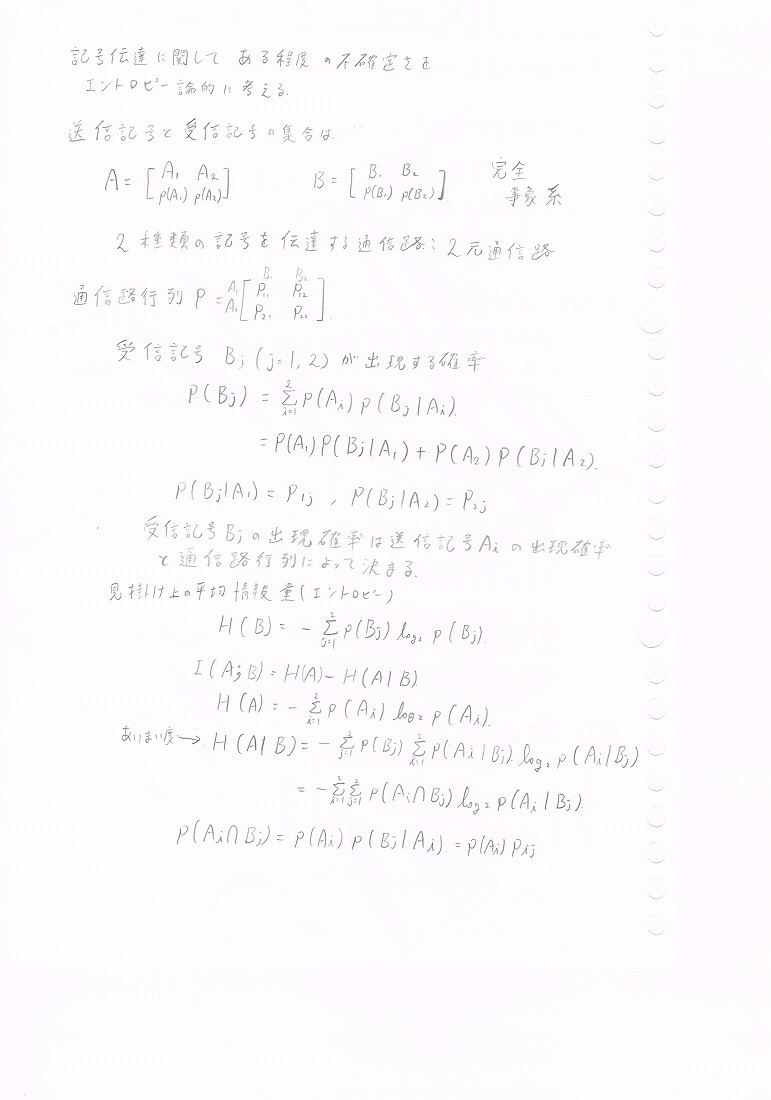 記号伝達に関して ある程度の不確定さを
エントロピー論的に考える.
送信記号と受信記号の集合は
A = [A₁ A₂ / p(A₁) p(A₂)] B = [B₁ B₂ / p(B₁) p(B₂)] 完全
事象系
2種類の記号を伝達する通信路:2元通信路
B₁ B₂
通信路行列 P = A₁ A₂ [P₁₁ P₁₂ / P₂₁ P₂₂].
受信記号 Bj (j=1,2)が出現する確率
P(Bj) = Σ_{i=1}^{2} p(Ai) p(Bj|Ai).
= P(A₁)P(Bj|A₁) + P(A₂) P(Bj|A₂).
P(Bj|A₁) = P₁j , P(Bj|A₂) = P₂j
受信記号Bjの出現確率は送信記号Aiの出現確率
と通信路行列によって決まる.
見掛け上の平均情報量(エントロピー)
H(B) = - Σ_{j=1}^{2} p(Bj) log₂ p(Bj).
I(A;B) = H(A) - H(A|B).
H(A) = - Σ_{i=1}^{2} p(Ai) log₂ p(Ai).
あいまい度→ H(A|B) = - Σ_{j=1}^{2} p(Bj) Σ_{i=1}^{2} p(Ai|Bj) log₂ p(Ai|Bj)
= - Σ_{i=1}^{2} Σ_{j=1}^{2} p(Ai∩Bj) log₂ p(Ai|Bj).
p(Ai∩Bj) = p(Ai) p(Bj|Ai). = p(Ai) Pij